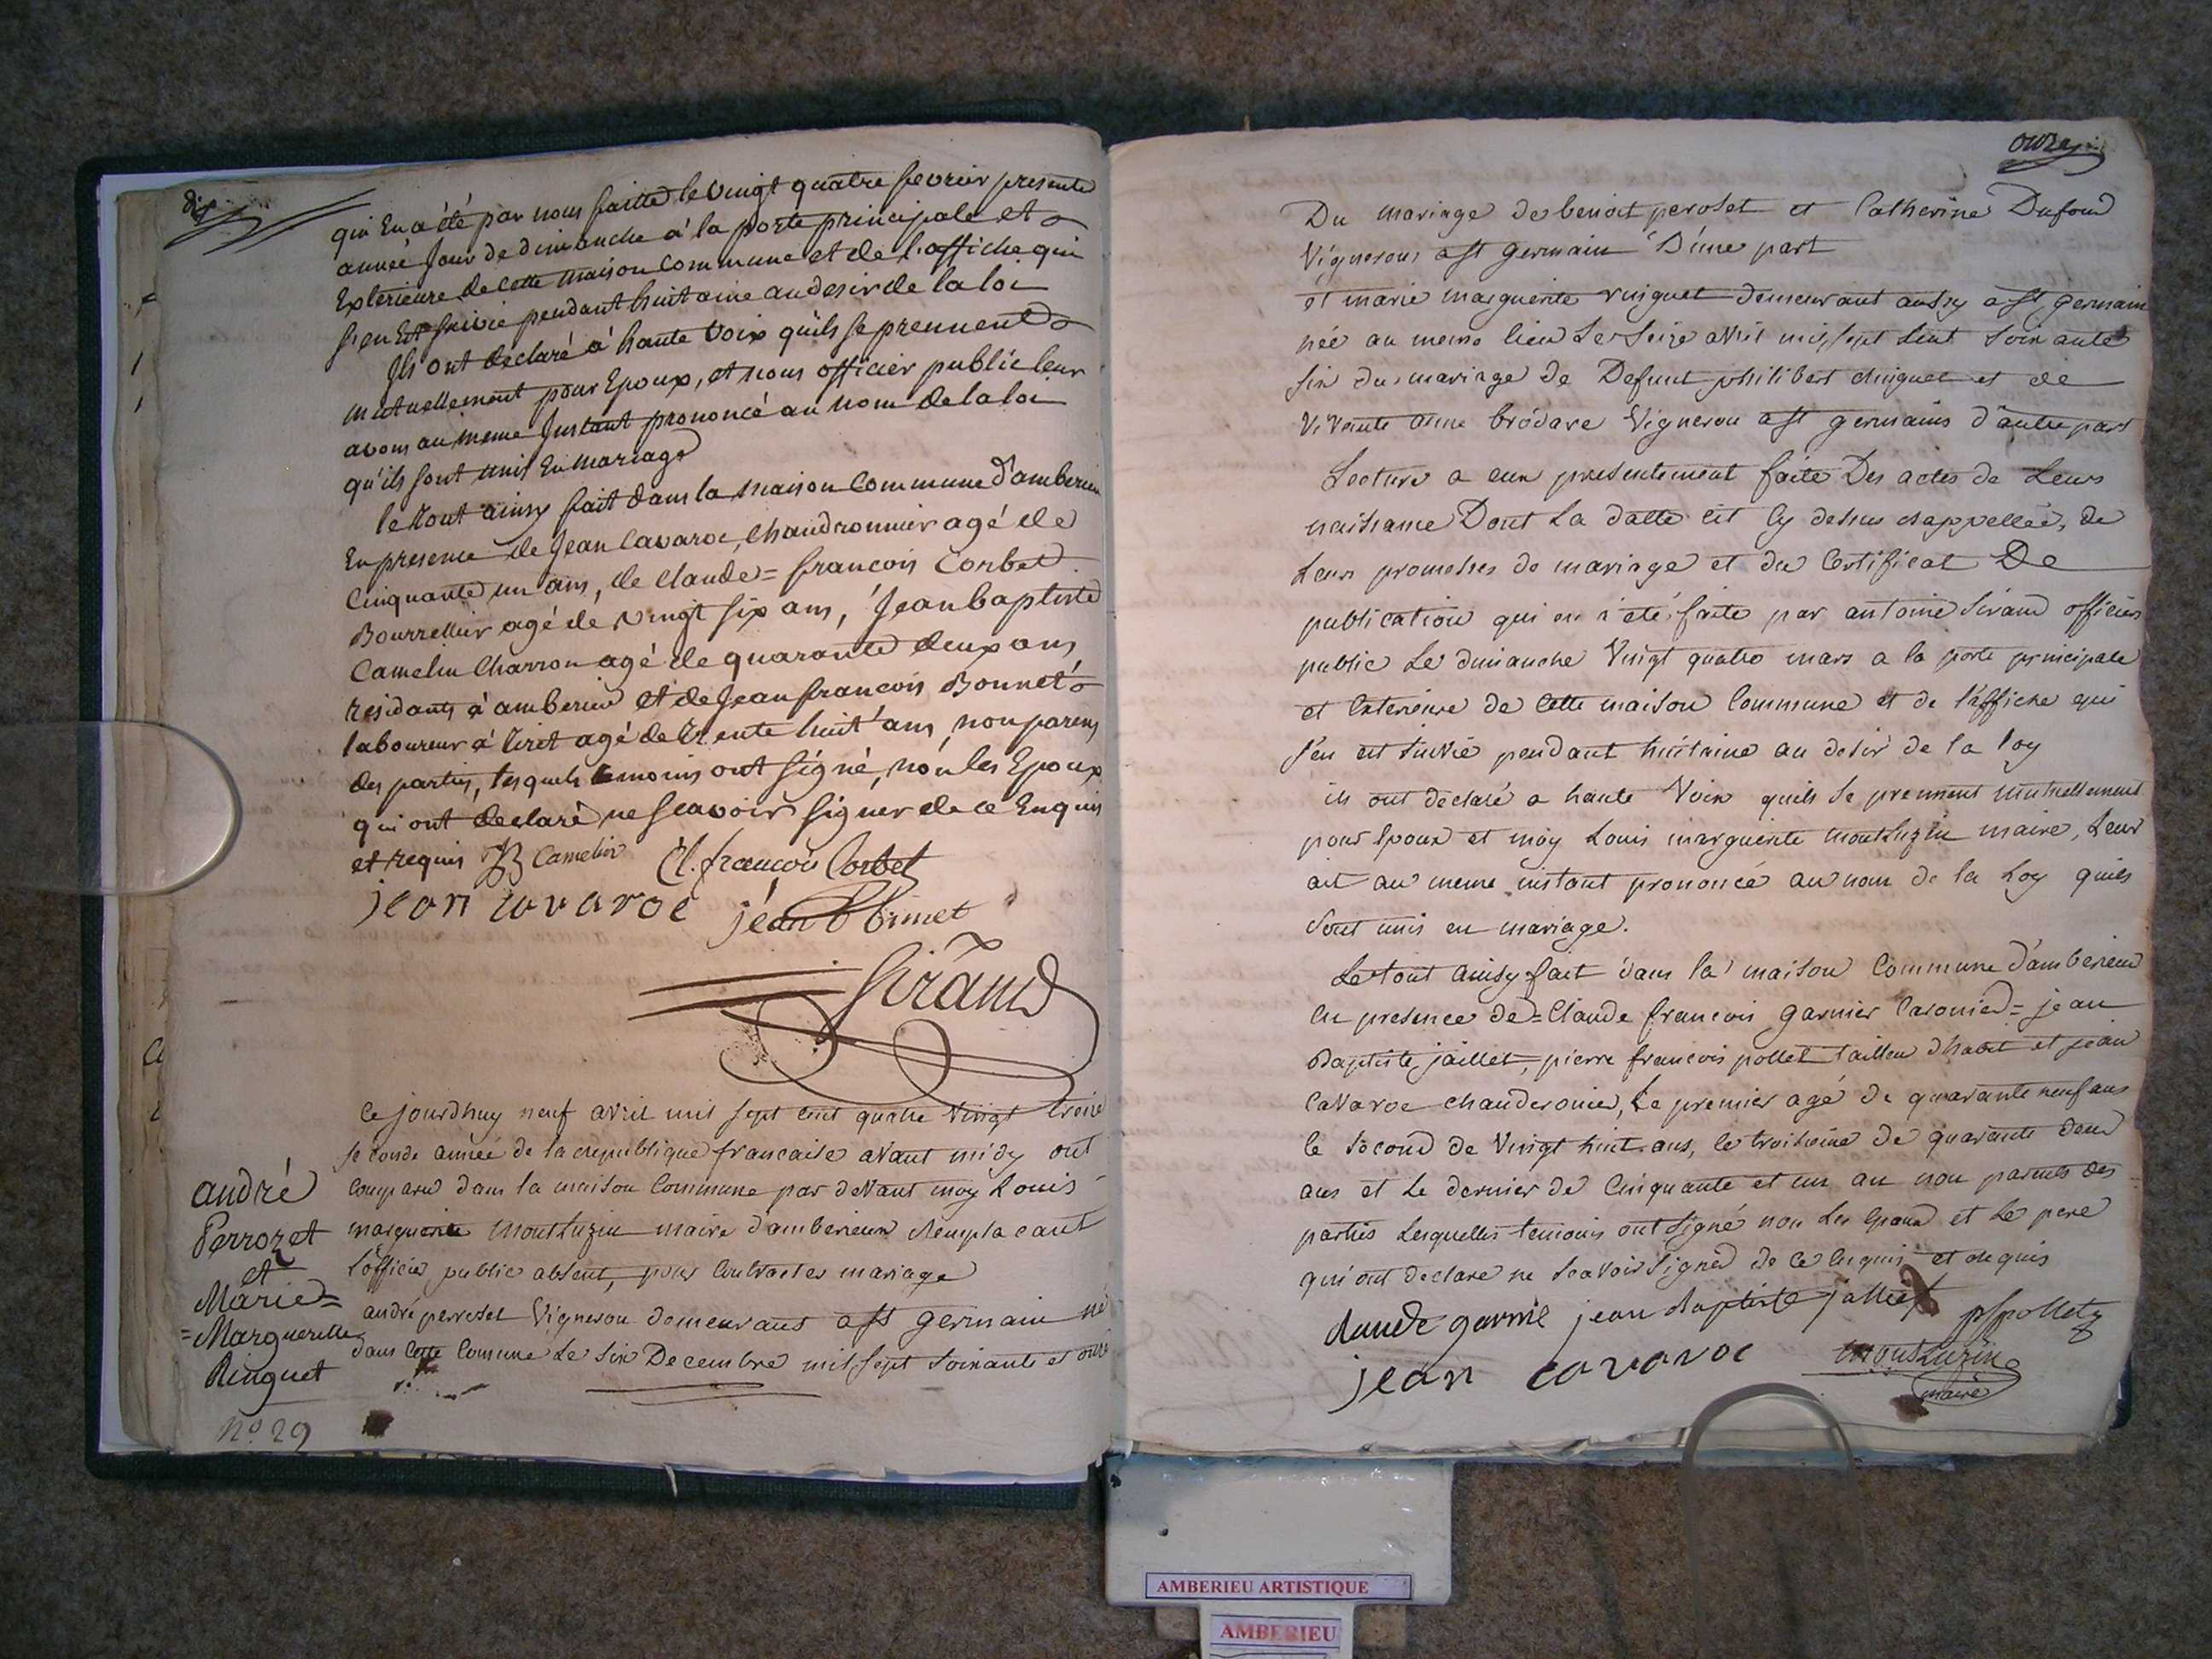 dix
qui En a été par nous faitte le vingt quatre fevrier presente
année Jour de dimanche á la porte principale et
Extérieure de cette maison commune et de l'affiche qui
s'en Est suivie pendant huitaine au desir de la loi
Ils ont déclaré á haute Voix qu'ils se prennent
mutuellement pour Epoux, et nous officier public leur
avons au meme Instant prononcé au nom de la loi
qu'ils sont unis En mariage
le Tout ainsy fait dans la maison Commune d'amberieu
En presence de Jean Cavaroc, Chaudronnier agé de
Cinquante un ans, de Claude = francois Corbet
Bourrellier agé de vingt six ans, Jean baptiste
Camelin Charron agé de quarante deux ans
résidants á amberieu et de Jean francois Bonnet
laboureur á Tiret agé de Trente huit ans, non parens
des parties, lesquels temoins ont signé, non les Epoux
qui ont declaré ne scavoir signer de ce Enquis
et requis JB Camelin Cl. francois Corbet
jean cavaroc jean bonnet
Sirand
Ce jourdhuy neuf avril mil sept cent quatre vingt treize
seconde année de la republique francaise avant midy ont
comparu dans la maison Commune par devant moy Louis
marguerite montluzin maire d'amberieux remplacant
l'officier public absent, pour Contracter mariage
andré perroset Vigneron demeurant a st germain né
dans cette Comune Le six Decembre mil sept soixante et onze
andré
Perrozet
et
Marie =
= Marguerite
Ringuet
No. 29
onze
Du mariage de benoit peroset et Catherine Dufour
Vignerons a st germain D'une part
et marie marguerite ringuet demeurant aussy a st germain
née au meme lieu Le seize avril mil sept Cent soixante
six du mariage de Defunt philibert ringuet et de
Vivante anne brodare Vigneron a st germains d'autre part
Lecture a eux presentement faite Des actes de Leurs
naissance Dont La datte est Cy dessus rappellée, de
Leurs promesses de mariage et du Certificat De
publication qui en a été faite par antoine Sirand officier
public Le dimanche Vingt quatre mars a la porte principale
et Exterieure de Cette maison Commune et de l'affiche qui
s'en est suivie pendant huitaine au desir de la loy
ils ont declaré a haute Voix quils se prennent mutuellement
pour Epoux et moy Louis marguerite montluzin maire, Leur
ait au meme instant prononcé au nom de la Loy quils
sont unis en mariage.
Le tout ainsy fait dans la maison Commune d'amberieux
En presence de = Claude francois garnier = jean
Baptiste jaillet, pierre francois pollet tailleur dhabit et jean
Cavaroc chauderonier, Le premier agé de quarante neuf ans
le second de Vingt huit ans, le troisieme de quarante deux
ans et Le dernier de Cinquante et un an non parents des
parties Lesquelles temoins ont signé non Les Epoux et Le pere
qui ont declare ne scavoir signer de Ce Enquis et requis
claude garnie jean baptiste jalliet pfpollet
jean cavaroc montluzin
maire
AMBERIEU ARTISTIQUE
AMBERIEU